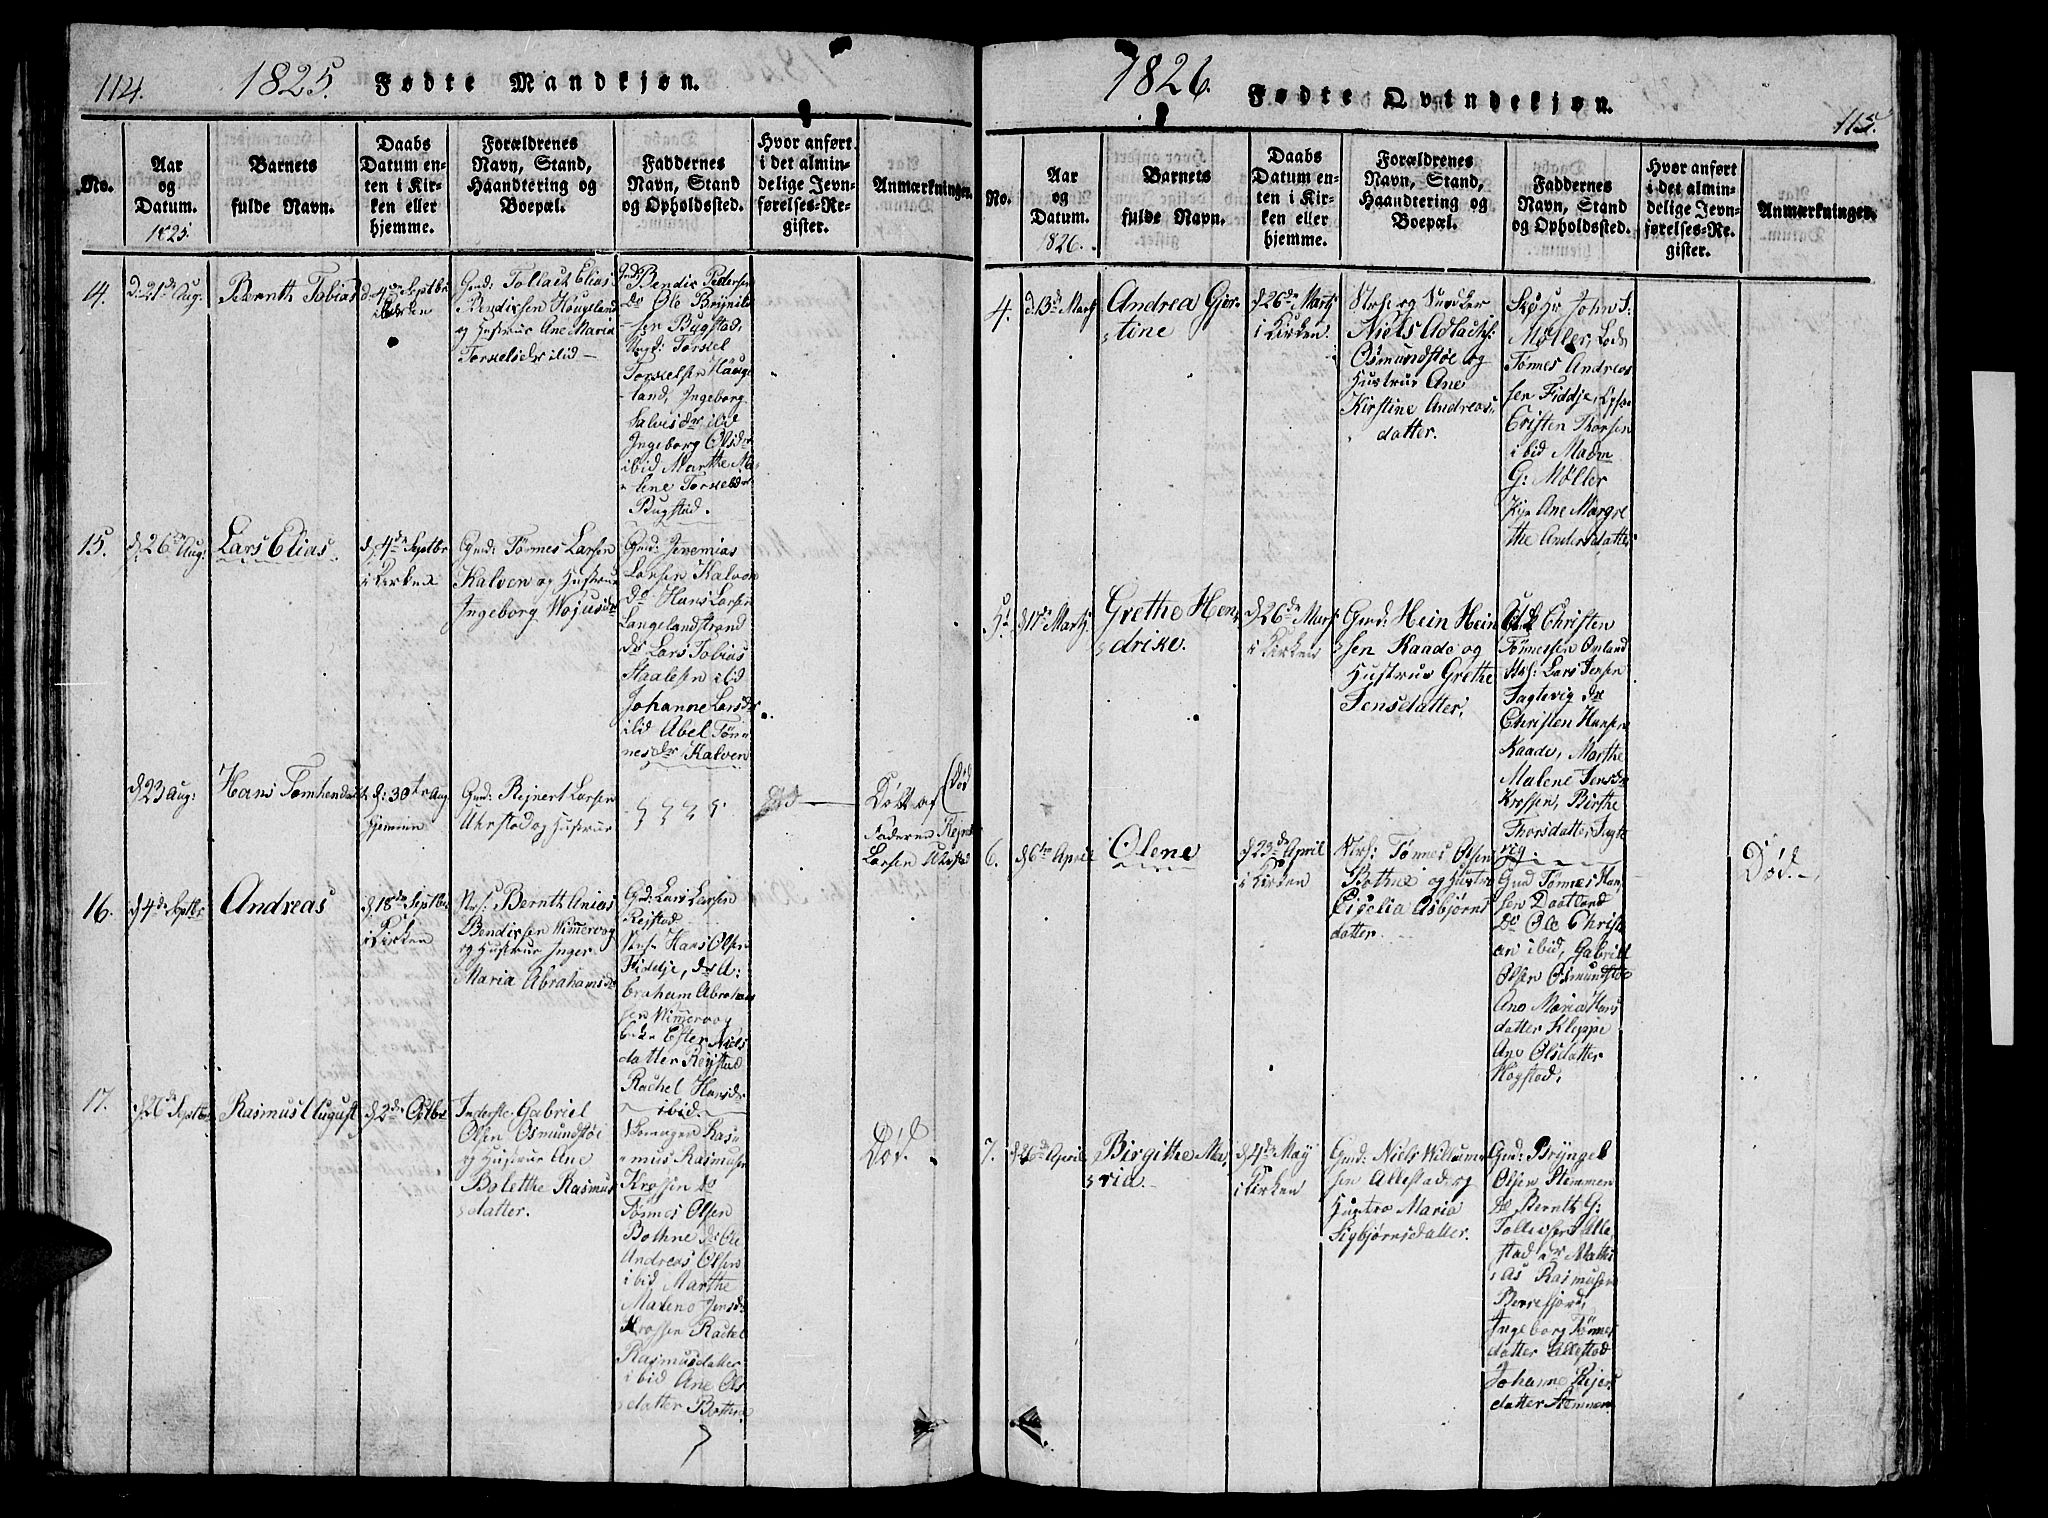 114.
1825.
Fødte Mandkjøn.
No.
Aar
og
Datum.
1825.
Barnets
fulde Navn.
Daabs
Datum en-
ten i Kir-
ken eller
hjemme.
Forældrenes
Navn, Stand,
Haandtering og
Boepæl.
Faddernes
Navn, Stand
og Opholdssted.
Hvor anført
i det almin-
delige Jevn-
førelses-Re-
gister.
Anmærkninger.
14.
d. 21de Aug.
Bernth Tobias
d. 4de Septbr
i Kirken
Gmd: Tollach Elias
Bendixsen Hougland
og Hustrue Ane Maria
Torkelsdr ibid
Bendix Pedersen
do Ole Brynild
sen Bugstad,
Ungk: Torkel
Torkelsen Houg
land, Ingeborg
Salvisdr ibid
Ingeborg Olsdr
ibid Marthe Ma
lene Torkelsdr
Bugstad.
15.
d. 26de Aug:
Lars Elias.
d. 4de Septbr
i Kirken
Gmd: Tønnes Larsen
Kalven og Hustrue
Ingeborg
Gmd: Jeremias
Larsen Kalven
do Hans Larsen
Langelandstrand
do Lars Tobias
Staalesen ibid
Johanne Larsdr
ibid Abel Tøn
nesdr Kalven
d. 23 Aug:
Hans
d: 30te Aug
Hjemme
Gmd: Rejnert Larsen
Uhrstad og Hustrue
Døbt af
Faderen Rejnert
Larsen Uhrstad
(Død
16.
d. 4de Septbr
Andreas
d. 18de Septbr
i Kirken
Bernth Anias
Bendixsen
og Hustrue Inger
Maria Abrahamsdr
Gmd: Lars Larsen
Rejstad
Hans Olsen
Fiddje, do A:
braham Abraham
sen
Ester Niels
datter Rejstad
Rachel Hansdr
ibid.
17.
Septbr
Rasmus August
d. 2de Octbr
Inderste Gabriel
Olsen Osmundstøe
og Hustrue Ane
Bolethe Rasmus
datter.
Ras
mus Rasmusen
Krossen do
Tønnes Olsen
Bothne do Ole
Andreas Olsen
ibid Marthe
Malene Jensdr
Krossen Rachel
Rasmusdatter
ibid Ane Ols
datter Bothne
Død.
1826.
Fødte Qvindekjøn.
115.
No.
Aar
og
Datum.
1826.
Barnets
fulde Navn.
Daabs
Datum en-
ten i Kir-
ken eller
hjemme.
Forældrenes
Navn, Stand,
Haandtering og
Boepæl.
Faddernes
Navn, Stand
og Opholdssted.
Hvor anført
i det almin-
delige Jevn-
førelses-Re-
gister.
Anmærkninger.
4.
d. 13de Marts
Andrea Gjer-
tine
d. 26de Marts
i Kirken
Niels Adlachs:
Osmundstøe og
Hustrue Ane
Kirstine Andreas
datter.
John S:
Møller, Lods
Tønnes Andreas
sen Fiddje,
Cristen Thorsen
ibid Madm
G: Møller
Ane Margre
the Andersdatter
5.
d. 17de Marts
Grethe Hen
drike.
d. 26de Marts
i Kirken
Gmd: Hein Hein
sen Kaade og
Hustrue Grethe
Jensdatter.
Christen
Tønnessen Omland
Lars Jensen
Fagtevig do
Christen Hansen
Kaade, Marthe
Malene Jensdr
Krossen, Birthe
Thorsdatter Fagte
vig.
6.
d. 6te April
Olene
d. 23de April
i Kirken
Tønnes Olsen
Bothne og Hustro
Cicelia Asbjørns
datter.
Gmd Tønnes Han
sen Daatland
do Ole Christ
an ibid, Gabriel
Olsen Osmundstøe
Ane Maria Hans
datter Kleppe
Ane Olsdatter
Hogstad,
Død.
7.
d. 26de April
Birgithe Ma
ria.
d. 4de May
i Kirken
Gmd: Niels Willum
sen Allestad og
Hustro Maria
Sigbjørnsdatter.
Gmd: Bryngel
Olsen Stemmen
do Bernth G:
Tollessen Alle
stad Mathi
as Rasmusen
Berrefjord,
Ingeborg Tønnes
datter Allestad
Johanne Rejers
datter Stemmen